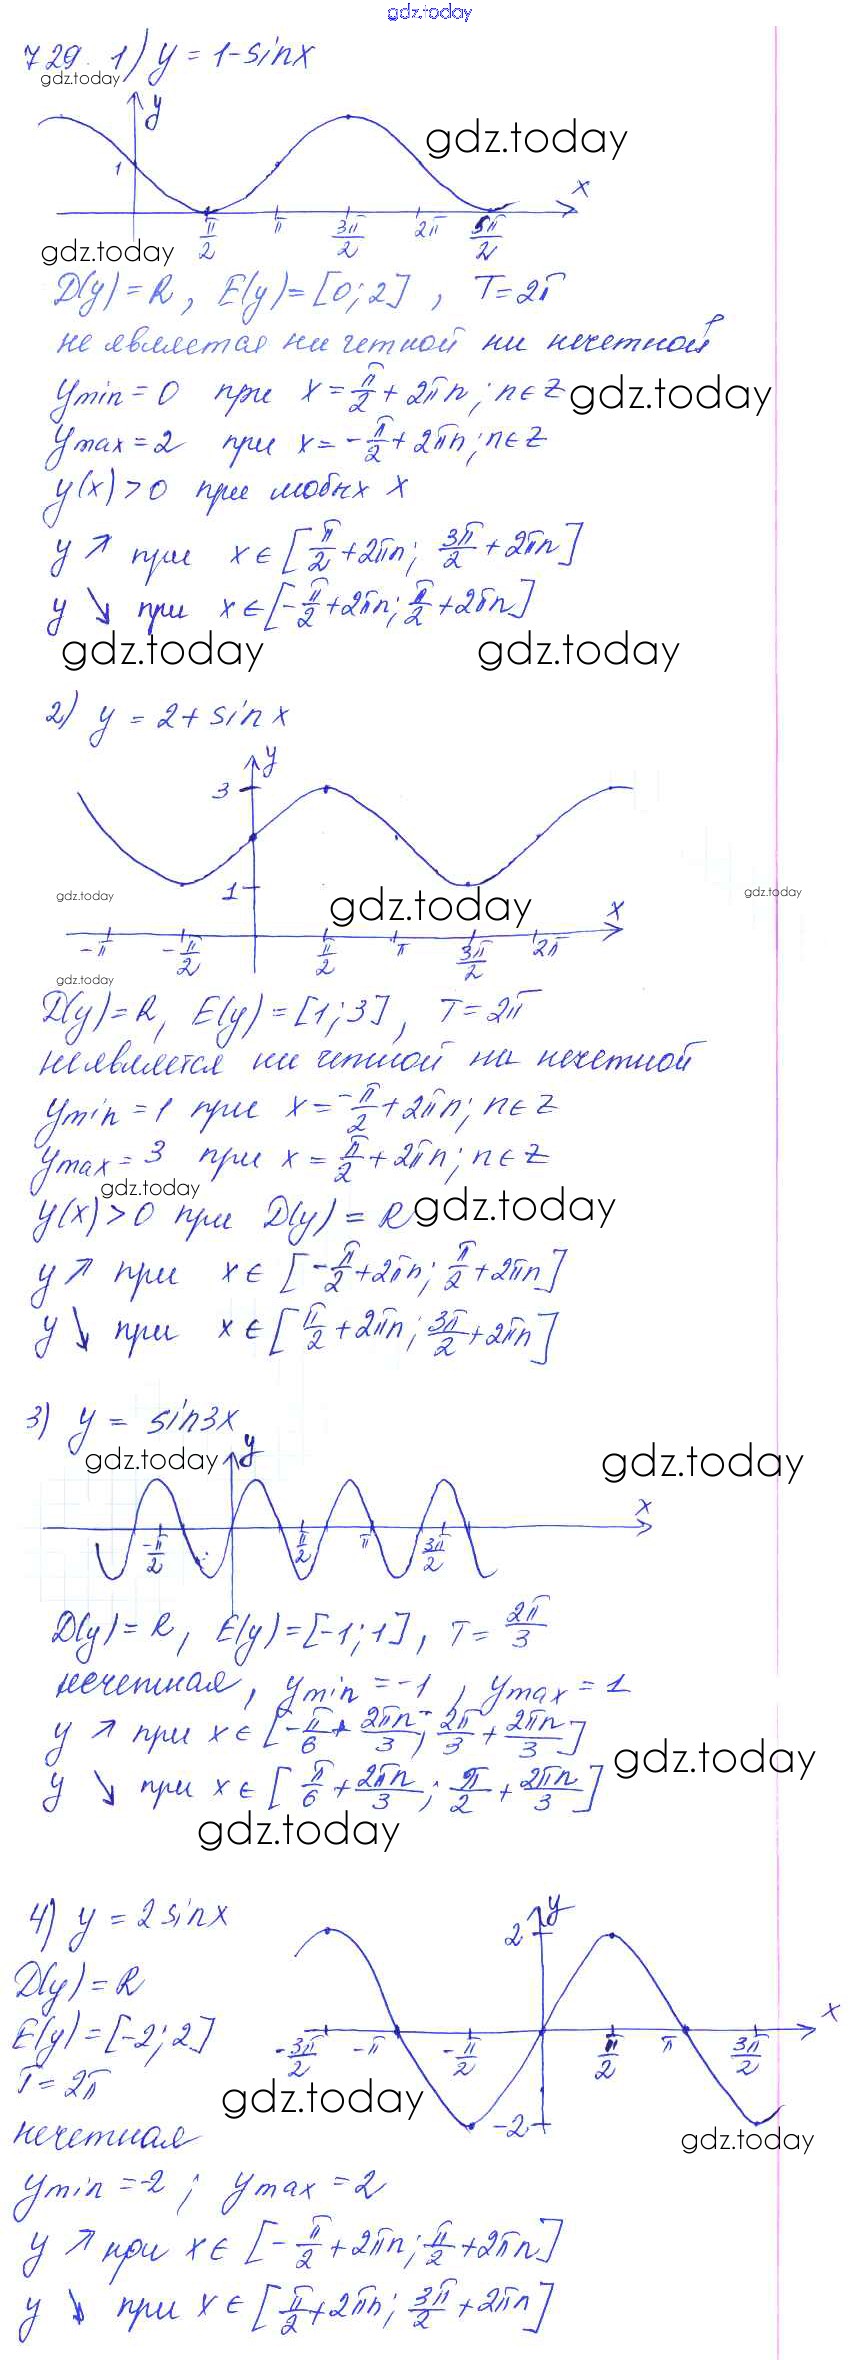 gdz.today
729. 1) y = 1-sinx
gdz.today
y
gdz.today
1
x
π/2 π 3π/2 2π 5π/2
gdz.today
D(y)=R, E(y)=[0;2], T=2π
не является ни четной ни нечетной
ymin=0 при x=π/2+2πn; n∈Z
gdz.today
ymax=2 при x=-π/2+2πn; n∈Z
y(x)>0 при любых x
y↗ при x∈[π/2+2πn; 3π/2+2πn]
y↘ при x∈[-π/2+2πn; π/2+2πn]
gdz.today gdz.today
2) y = 2+sinx
y
3
gdz.today
1
gdz.today
gdz.today
x
-π -π/2 π/2 π 3π/2 2π
gdz.today
D(y)=R, E(y)=[1;3], T=2π
не является ни четной ни нечетной
ymin=1 при x=-π/2+2πn; n∈Z
ymax=3 при x=π/2+2πn; n∈Z
gdz.today
y(x)>0 при D(y)=R
gdz.today
y↗ при x∈[-π/2+2πn; π/2+2πn]
y↘ при x∈[π/2+2πn; 3π/2+2πn]
3) y = sin3x
gdz.today
y
gdz.today
x
-π/2 π/2 π 3π/2
D(y)=R, E(y)=[-1;1], T=2π/3
нечетная, ymin=-1, ymax=1
y↗ при x∈[-π/6+2πn/3; 2π/3+2πn/3]
gdz.today
y↘ при x∈[π/6+2πn/3; π/2+2πn/3]
gdz.today
4) y = 2sinx
y
2
D(y)=R
x
E(y)=[-2;2]
-3π/2 -π -π/2 π/2 π 3π/2
T=2π
gdz.today
-2
нечетная
gdz.today
ymin=-2; ymax=2
y↗ при x∈[-π/2+2πn; π/2+2πn]
y↘ при x∈[π/2+2πn; 3π/2+2πn]